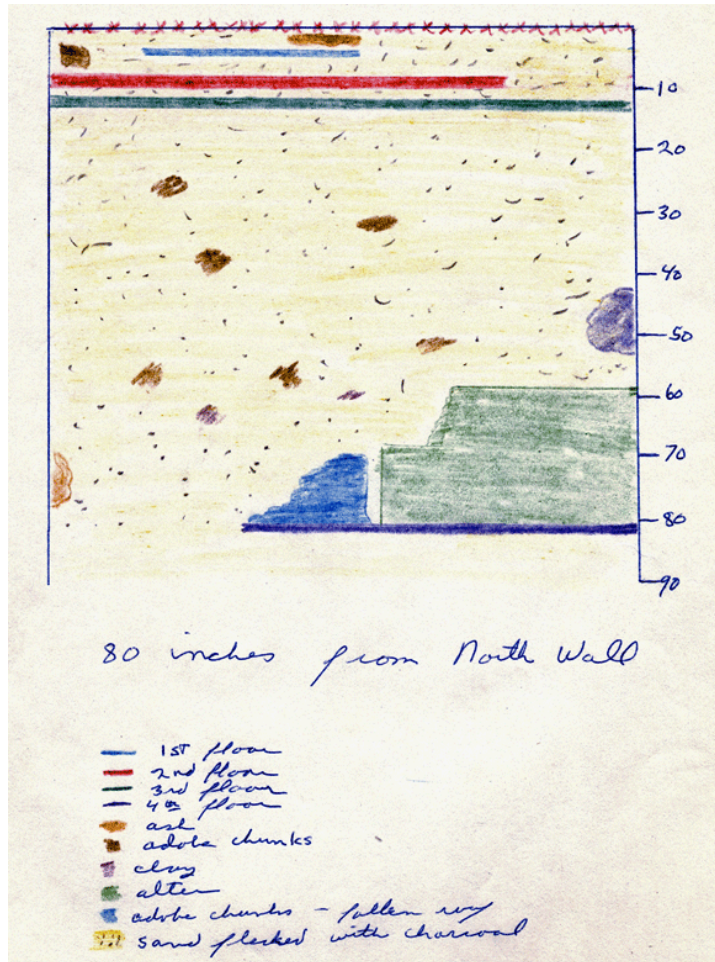 10
20
30
40
50
60
70
80
90
80 inches from North Wall
1st floor
2nd floor
3rd floor
4th floor
ash
adobe chunks
clay
alter
adobe chunks - fallen roof
sand flecked with charcoal